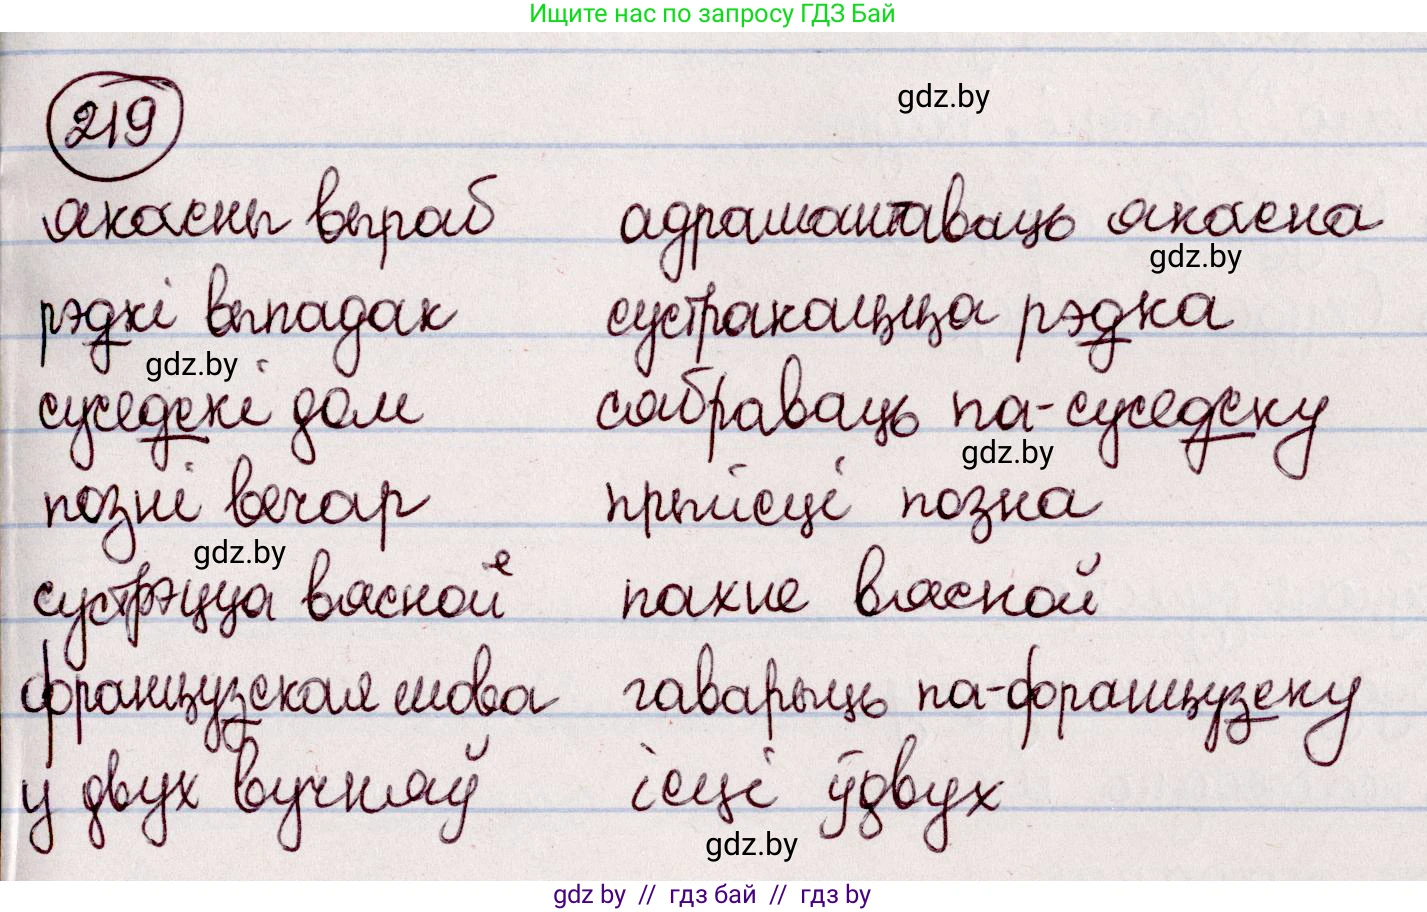 Ищите нас по запросу ГДЗ Бай
219
gdz.by
якасны выраб адрамантаваць якасна
gdz.by
рэдкі выпадак сустракацца рэдка
gdz.by
суседскі дом сябраваць па-суседску
gdz.by
позні вечар прыйсці позна
gdz.by
сустрэцца вясной пахне вясной
французская мова гаварыць па-французску
у двух вучняў ісці ўдвух
gdz.by
gdz.by // гдз бай // гдз by